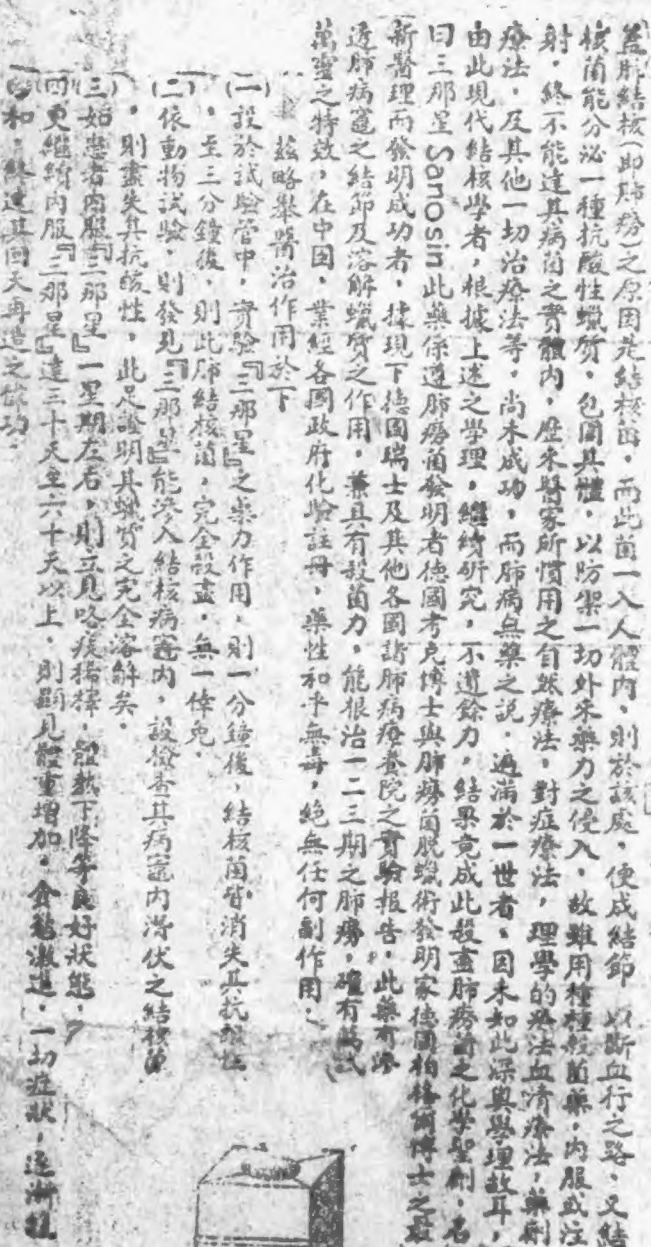 蓋肺結核(即肺癆)之原因是結核菌，而此菌一入人體內，則於該處，便成結節　以斷血行之路，又結
核菌能分泌一種抗酸性蠟质，包圍其體，以防禦一切外來藥力之侵入，故雖用種種殺菌藥，內服或注
射，終不能達其病菌之實體內，歷來醫家所慣用之自然療法，對症療法，理學的療法血清療法，藥劑
療法，及其他一切治療法等，尚未成功，而肺病無藥之説，遍滿於一世者，因未知此深奥學理故耳，
由此現代結核學者，根據上述之學理，繼續研究，不遺餘力，結果竟成此殺盡肺癆菌之化學聖劑，名
曰三那星Sanosin此藥係遵肺癆菌發明者德國考克博士與肺癆菌脱蠟術發明家德國柏格爾博士之最
新醫理而發明成功者，據現下德國瑞士及其他各國諸肺病療養院之實驗报告，此藥有滲
透肺病竈之結節及溶解蠟质之作用，兼具有殺菌力，能根治一二三期之肺癆，確有萬試
萬靈之特效，在中国，業經各國政府化驗註册，藥性和平無毒，絶無任何副作用，
兹略舉醫治作用於下
(一)設於試驗管中，實驗『三那星』之藥力作用，則一分鐘後，結核菌皆消失其抗酸性
，至三分鐘後，則此肺結核菌，完全殺盡，無一倖免，
(二)依動物試驗，則發見『三那星』能滲入結核病竈内，設檢查其病竈内潜伏之結核菌
，則盡失其抗酸性，此足證明其蠟质之完全溶解矣，
(三)如患者内服『三那星』一星期左右，則立見咯痰稀釋，體熱下降等良好狀態，
(四)更繼續内服『三那星』達三十天至六十天以上，則顯見體重增加，食慾激進，一切症狀，逐漸
和，終達其回天再造之偉功，